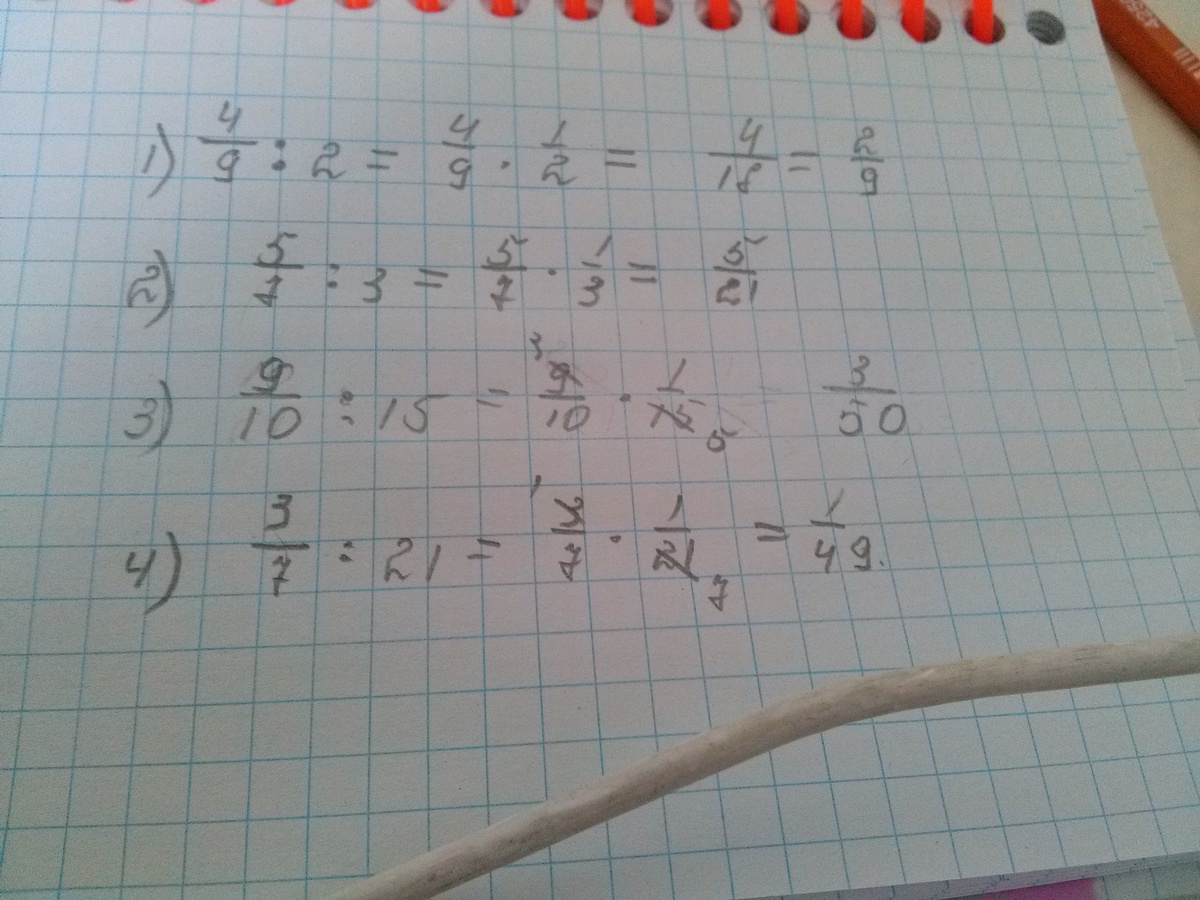 1) 4/9 : 2 = 4/9 · 1/2 = 4/18 = 2/9
2) 5/7 : 3 = 5/7 · 1/3 = 5/21
3) 9/10 : 15 = 3 9/10 · 1/15 5 = 3/50
4) 3/7 : 21 = 1 3/7 · 1/21 7 = 1/49.